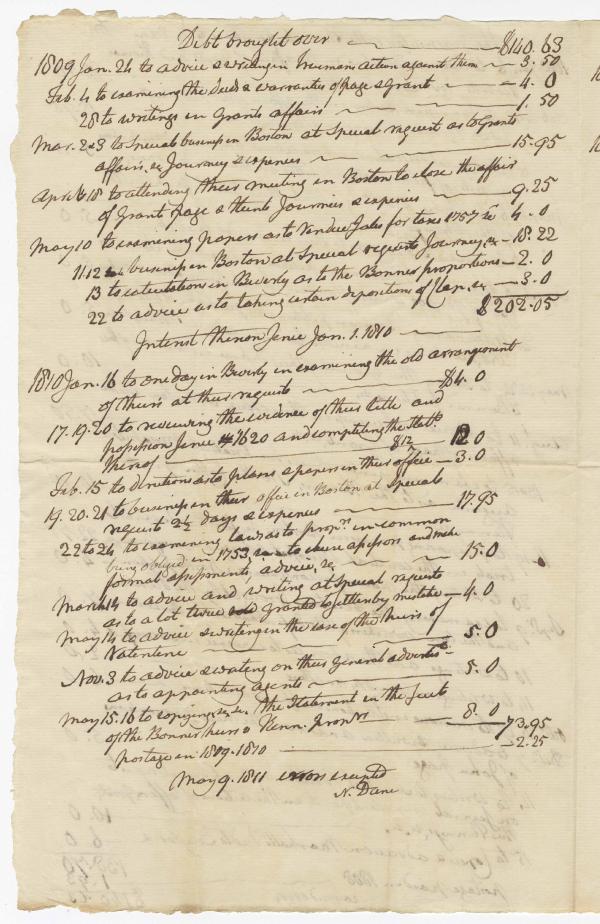 Debt brought over — $140.63
1809 Jan. 24 to advice & writing in Freemans action against them — 3.50
Feb. 4 to examining the deeds & warranties of page & Grant — 4.0
28 to writings in Grants affairs — 1.50
Mar. 2 & 3 to Special business in Boston at Special request as to Grants
affairs, &c Journey & expences — 15.95
April 18 to attending their meeting in Boston to close the affair
of Grant page & Journeys & expences — 9.25
May 10 to examining papers as to Vendue Sales for taxes 1757 &c 4.0
11 12 business in Boston at Special request Journey, &c — 18.22
13 to calculation in Beverly as to the Bonner proportions — 2.0
22 to advice as to taking certain depositions of Clap, &c — 3.0
$202.05
Interest thereon Jan. 1. 1810 —
1810 Jan. 16 to one day in Beverly in examining the old arrangement
of theirs at their request — $4.0
17.19.20 to reviewing the evidence of their title and
possession 1620 and compleating the Statt.
thereof — $12 12.0
Feb. 15 to directions as to plans & papers in their office — 3.0
19.20.21 to business in their office in Boston at Special
request 2½ days & expences — 17.95
22 to 24 to examining laws as to proprs. in common
being obliged in 1753, to chuse assessors and make
formal assessments, advice, &c — 15.0
March 14 to advice and writing at Special request
as to a lot twice granted to settlers by mistake — 4.0
May 14 to advice & writing in the case of the heirs of
Valentine — 5.0
Nov. 3 to advice & writing on their General advertist.
as to appointing agents — 5.0
May 15.16 to copying, &c. the Statement in the Suit
of the Bonner heirs v Kenn. propr — 8.0
73.95
postage in 1809. 1810 — 2.25
May 9. 1811 errors excepted
N. Dane